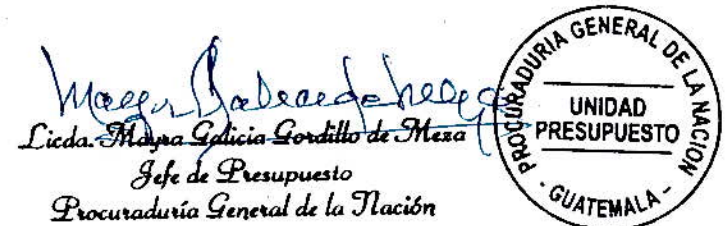 Licda. Mayra Galicia Gordillo de Meza
Jefe de Presupuesto
Procuraduría General de la Nación
PROCURADURIA GENERAL DE LA NACION
UNIDAD
PRESUPUESTO
- GUATEMALA -